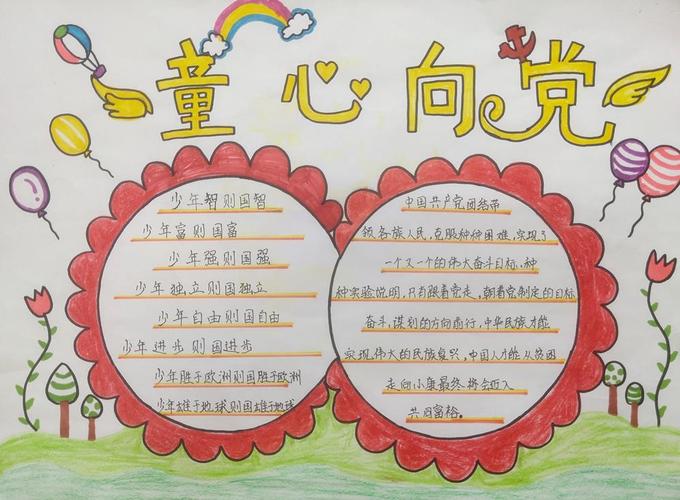 童心向党
少年智则国智
少年富则国富
少年强则国强
少年独立则国独立
少年自由则国自由
少年进步则国进步
少年胜于欧洲则国胜于欧洲
少年雄于地球则国雄于地球
中国共产党团结带
领各族人民,克服种种困难,实现了
一个又一个的伟大奋斗目标,种
种实验说明,只有跟着党走,朝着党制定的目标
奋斗,谋划的方向前行,中华民族才能
实现伟大的民族复兴,中国人才能从贫困
走向小康最终将会迈入
共同富裕。